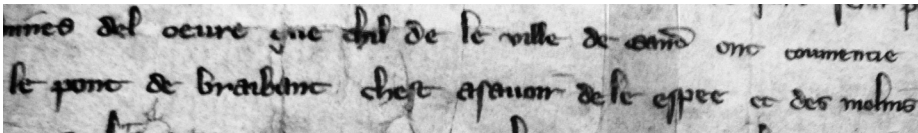 del oeure que chil de le ville de ont coumencie
le pont de braibant chest asauoir de le espee et des molins